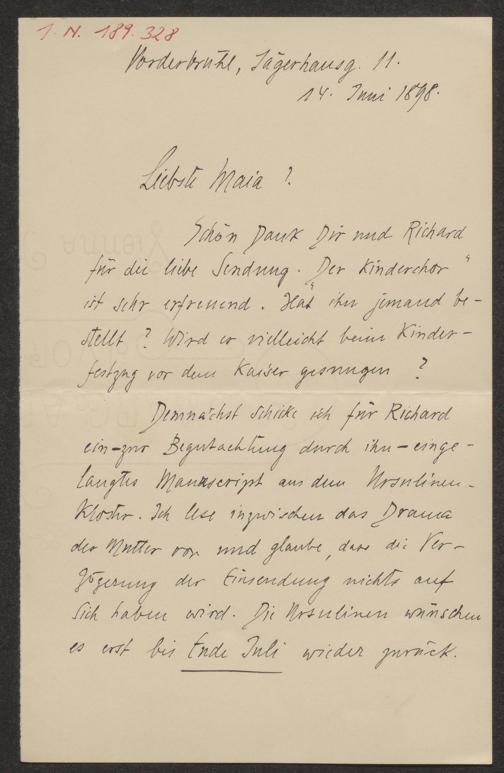 I. N. 189.328
Vorderbrühl, Jägerhausg. 11.
14. Juni 1898.
Liebste Maia!
Schön Dank Dir und Richard
für die liebe Sendung. Der „Kinderchor“
ist sehr erfreuend. Hat ihn jemand be-
stellt? Wird er vielleicht beim Kinder-
festzug vor dem Kaiser gesungen?
Demnächst schicke ich für Richard
ein – zur Begutachtung durch ihn – einge-
langtes Manuscript aus dem Ursulinen-
Kloster. Ich lese inzwischen das Drama
der Mutter vor und glaube, dass die Ver-
zögerung der Einsendung nichts auf
sich haben wird. Die Ursulinen wünschen
es erst bis Ende Juli wieder zurück.